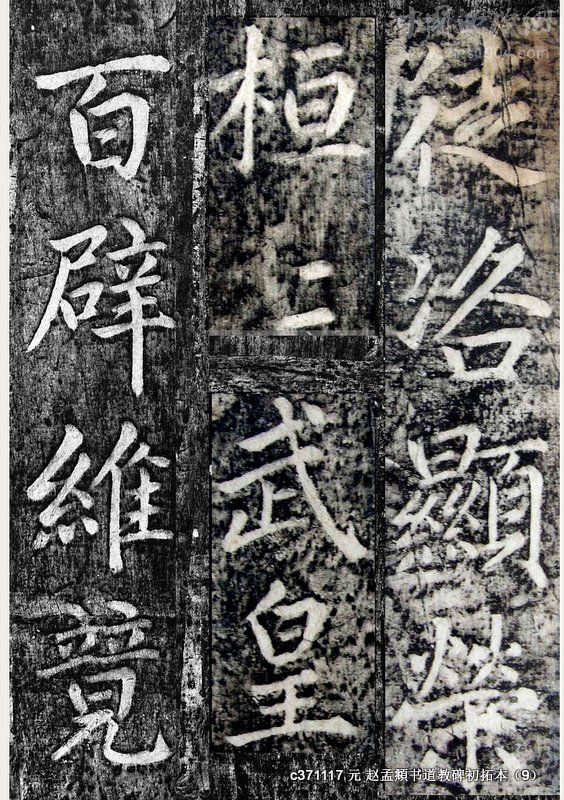 徙洛顯榮
桓二武皇
百辟維
c371117 元 赵孟頫书道教碑初拓本（9）